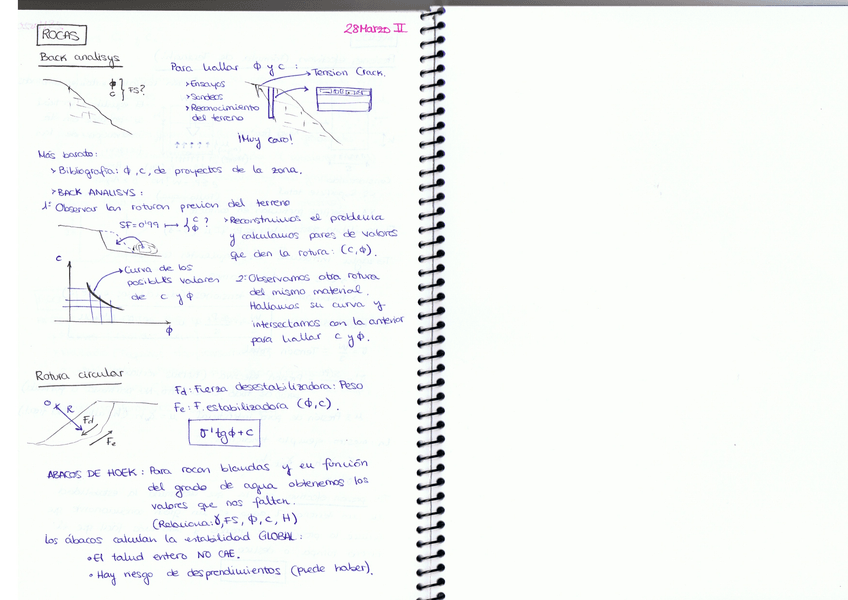 28 Marzo II
ROCAS
Back analisys
ϕ
C } FS?
Para hallar ϕ y c :
> Ensayos
> Sondeos
> Reconocimiento
del terreno
Tension Crack.
¡Muy caro!
Más barato:
> Bibliografía: ϕ, c, de proyectos de la zona.
> BACK ANALISYS :
1º Observar las roturas previas del terreno
SF=0'99 ↦ { C
ϕ ?
> Reconstruimos el problema
y calculamos pares de valores
que den la rotura: (C,ϕ).
C
Curva de los
posibles valores
de c y ϕ
ϕ
2º Observamos otra rotura
del mismo material.
Hallamos su curva y
intersectamos con la anterior
para hallar c y ϕ.
Rotura circular
O
R
Fd
Fe
Fd: Fuerza desestabilizadora: Peso
Fe: F. estabilizadora (ϕ,c).
σ' tgϕ + c
ABACOS DE HOEK : Para rocas blandas y en función
del grado de agua obtenemos los
valores que nos falten.
(Relaciona: γ, FS, ϕ, c, H)
Los ábacos calculan la estabilidad GLOBAL:
• El talud entero NO CAE.
• Hay riesgo de desprendimientos (puede haber).